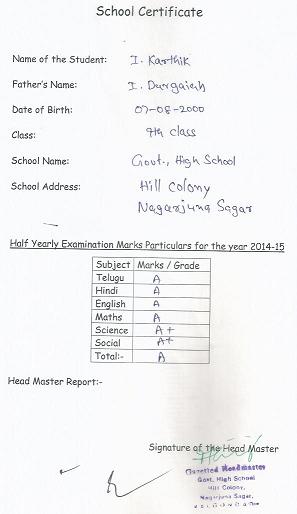 School Certificate
Name of the Student: I. Karthik
Father's Name: I. Durgaiah
Date of Birth: 07-08-2000
Class: 9th class
School Name: Govt., High School
School Address: Hill Colony
Nagarjuna Sagar
Half Yearly Examination Marks Particulars for the year 2014-15
Subject Marks / Grade
Telugu A
Hindi A
English A
Maths A
Science A+
Social A+
Total:- A
Head Master Report:-
Signature of the Head Master
Gazetted Headmaster
Govt. High School
Hill Colony,
Nagarjuna Sagar,